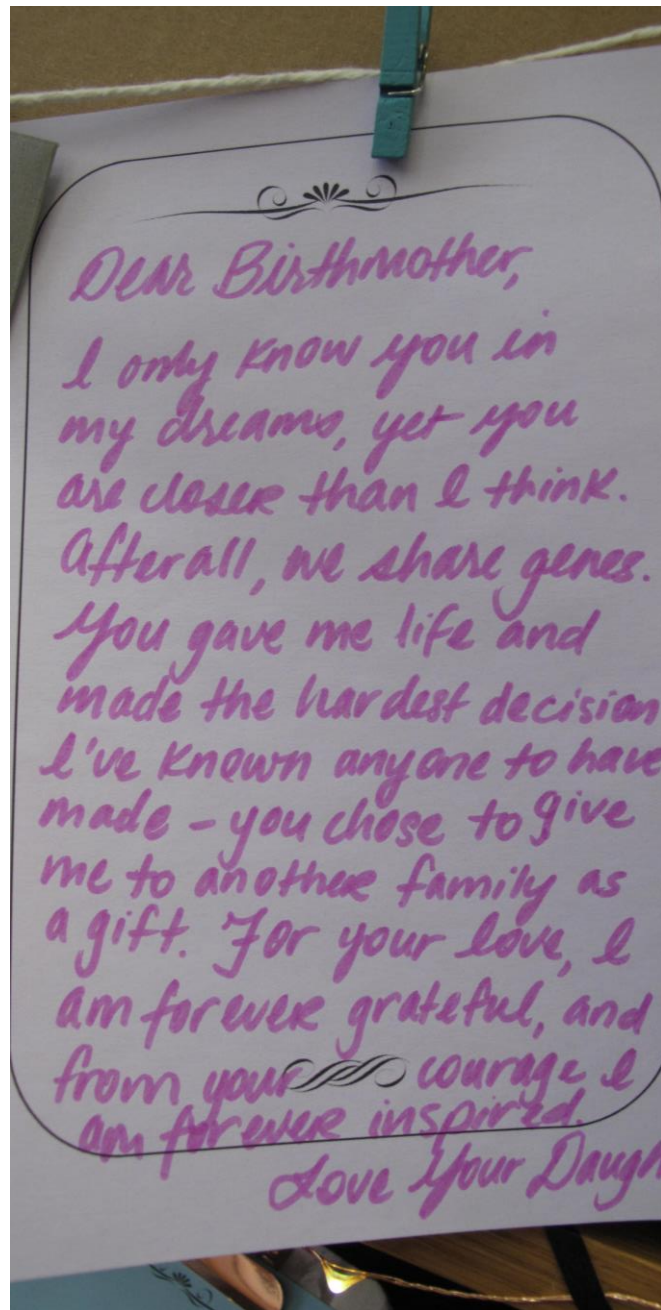 Dear Birthmother,
I only know you in
my dreams, yet you
are closer than I think.
Afterall, we share genes.
You gave me life and
made the hardest decision
I've known anyone to have
made - you chose to give
me to another family as
a gift. For your love, I
am forever grateful, and
from your courage I
am forever inspired.
Love Your Daugh